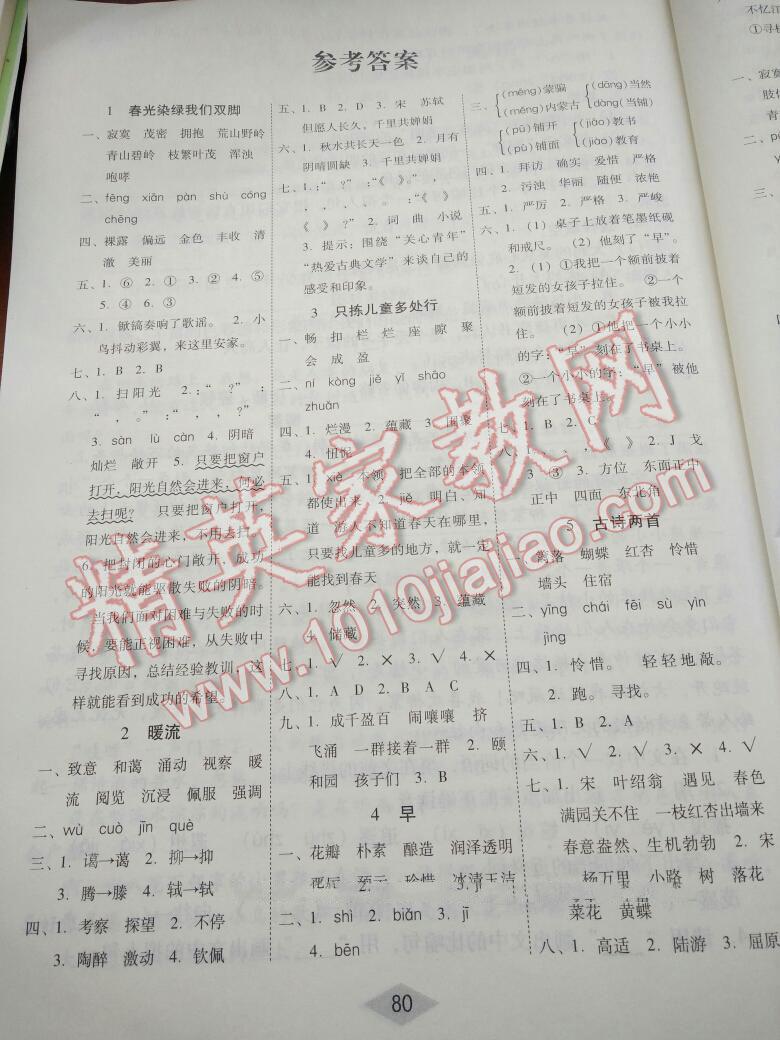 参考答案
1 春光染绿我们双脚
一、寂寞 茂密 拥抱 荒山野岭
青山碧岭 枝繁叶茂 浑浊
咆哮
二、fēng xiān pàn shù cóng
chēng
四、裸露 偏远 金色 丰收 清
澈 美丽
五、1. ⑥ 2. ① 3. ② 4. ⑤
5. ④ 6. ③
六、1. 锨镐奏响了歌谣。 2. 小
鸟抖动彩翼，来这里安家。
七、1. B 2. B
八、1. 扫阳光 2.：“ ？”：
“ ，。”：“ ，，？”
3. sàn lù càn 4. 阴暗
灿烂 敞开 5. 只要把窗户
打开，阳光自然会进来，何必
去扫呢？ 只要把窗户打开，
阳光自然会进来，不用去扫。
6. 把封闭的心门敞开，成功
的阳光就能驱散失败的阴暗。
当我们面对困难与失败的时
候，要能正视困难，从失败中
寻找原因，总结经验教训，这
样就能看到成功的希望。
2 暖流
一、致意 和蔼 涌动 视察 暖
流 阅览 沉浸 佩服 强调
二、wù cuò jīn què
三、1. 谒→蔼 2. 抑→抑
3. 腾→滕 4. 轼→轼
四、1. 考察 探望 2. 不停
3. 陶醉 激动 4. 钦佩
五、1. B 2. D 3. 宋 苏轼
但愿人长久，千里共婵娟
六、1. 秋水共长天一色 2. 月有
阴晴圆缺 3. 千里共婵娟
七、1.：“ ？”：“《 》。”，
，，，，。：“《 》
《 》？” 2. 词 曲 小说
3. 提示：围绕“关心青年”
“热爱古典文学”来谈自己的
感受和印象。
3 只拣儿童多处行
一、畅 扣 栏 烂 座 隙 聚
会 成 盈
二、ní kòng jiě yī shào
zhuǎn
四、1. 烂漫 2. 蕴藏 3. 围聚
4. 忸怩
五、1. xiè 本领 把全部的本领
都使出来 2. jiě 明白、知
道 游人不知道春天在哪里，
只要找儿童多的地方，就一定
能找到春天
六、1. 忽然 2. 突然 3. 蕴藏
4. 储藏
七、1. √ 2. × 3. √ 4. ×
八、1. A D 2. B A C
九、1. 成千盈百 闹嚷嚷 挤
飞涌 一群接着一群 2. 颐
和园 孩子们 3. B
4 早
一、花瓣 朴素 酿造 润泽透明
严厉 预示 珍惜 冰清玉洁
二、1. shì 2. biǎn 3. jī
4. bēn
三、(mēng)蒙骗 (dāng)当然
(měng)内蒙古 (dàng)当铺
(pū)铺开 (jiāo)教书
(pù)铺面 (jiào)教育
四、1. 拜访 确实 爱惜 严格
2. 污浊 华丽 随便 浓艳
五、1. 严厉 2. 严格 3. 严峻
六、1.（1）桌子上放着笔墨纸砚
和戒尺。（2）他刻了“早”。
2.（1）①我把一个额前披着
短发的女孩子拉住。 ②一个
额前披着短发的女孩子被我拉
住。（2）①他把一个小小
的字：“早”刻在了书桌上。
②一个小小的字：“早”被他
刻在了书桌上。
七、1. B 2. C
八、1.、，、，《 》 2. J 戈
3 ③ 3. 方位 东面正中
正中 四面 东北角
5 古诗两首
一、篱落 蝴蝶 红杏 怜惜
墙头 住宿
二、yīng chái fēi sù yìn
jìng
四、1. 怜惜。 轻轻地敲。
2. 跑。寻找。
五、1. B 2. A
六、1. √ 2. √ 3. × 4. √
七、1. 宋 叶绍翁 遇见 春色
满园关不住 一枝红杏出墙来
春意盎然、生机勃勃 2. 宋
杨万里 小路 树 落花
菜花 黄蝶
八、1. 高适 2. 陆游 3. 屈原
80
精英家教网
www.1010jiajiao.com